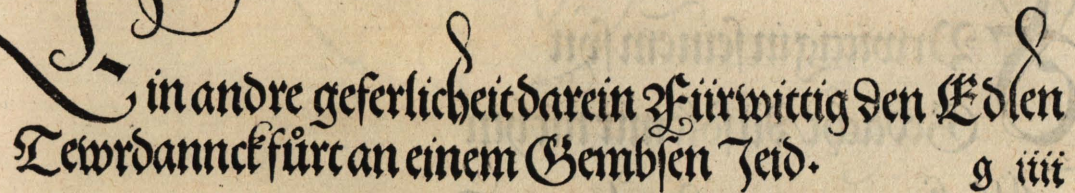 Ein andre geferlicheit darein Fürwittig den Edlen
Tewrdannck fůrt an einem Gembsen Jeid. g iiii